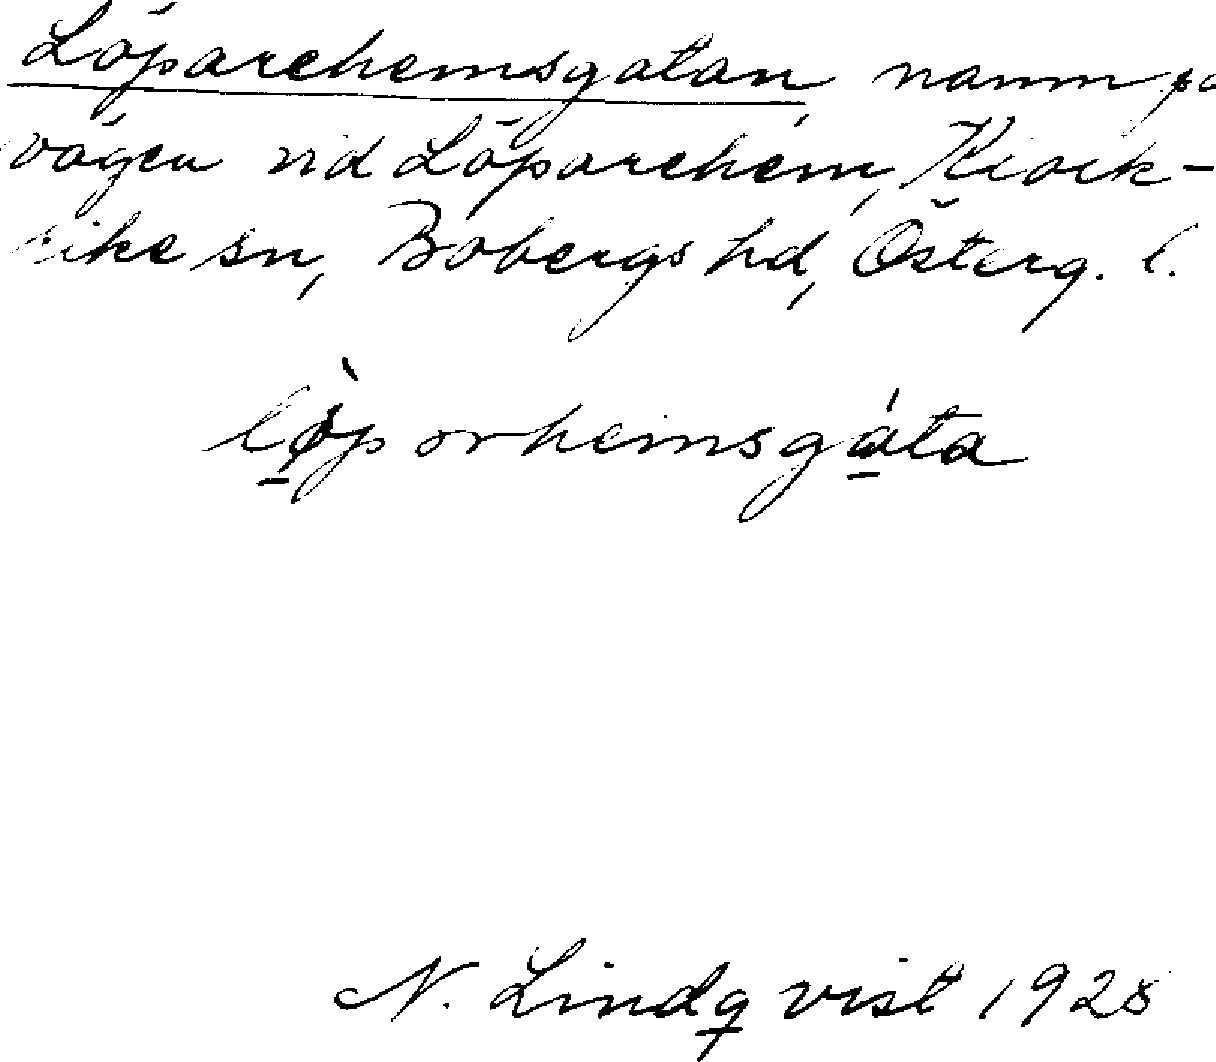 Löparehemsgatan, namn på
vägen vid Löparehem, Klock-
rike sn, Bobergs hd, Österg. l.
lø̀parhemsgáta
N. Lindqvist 1928